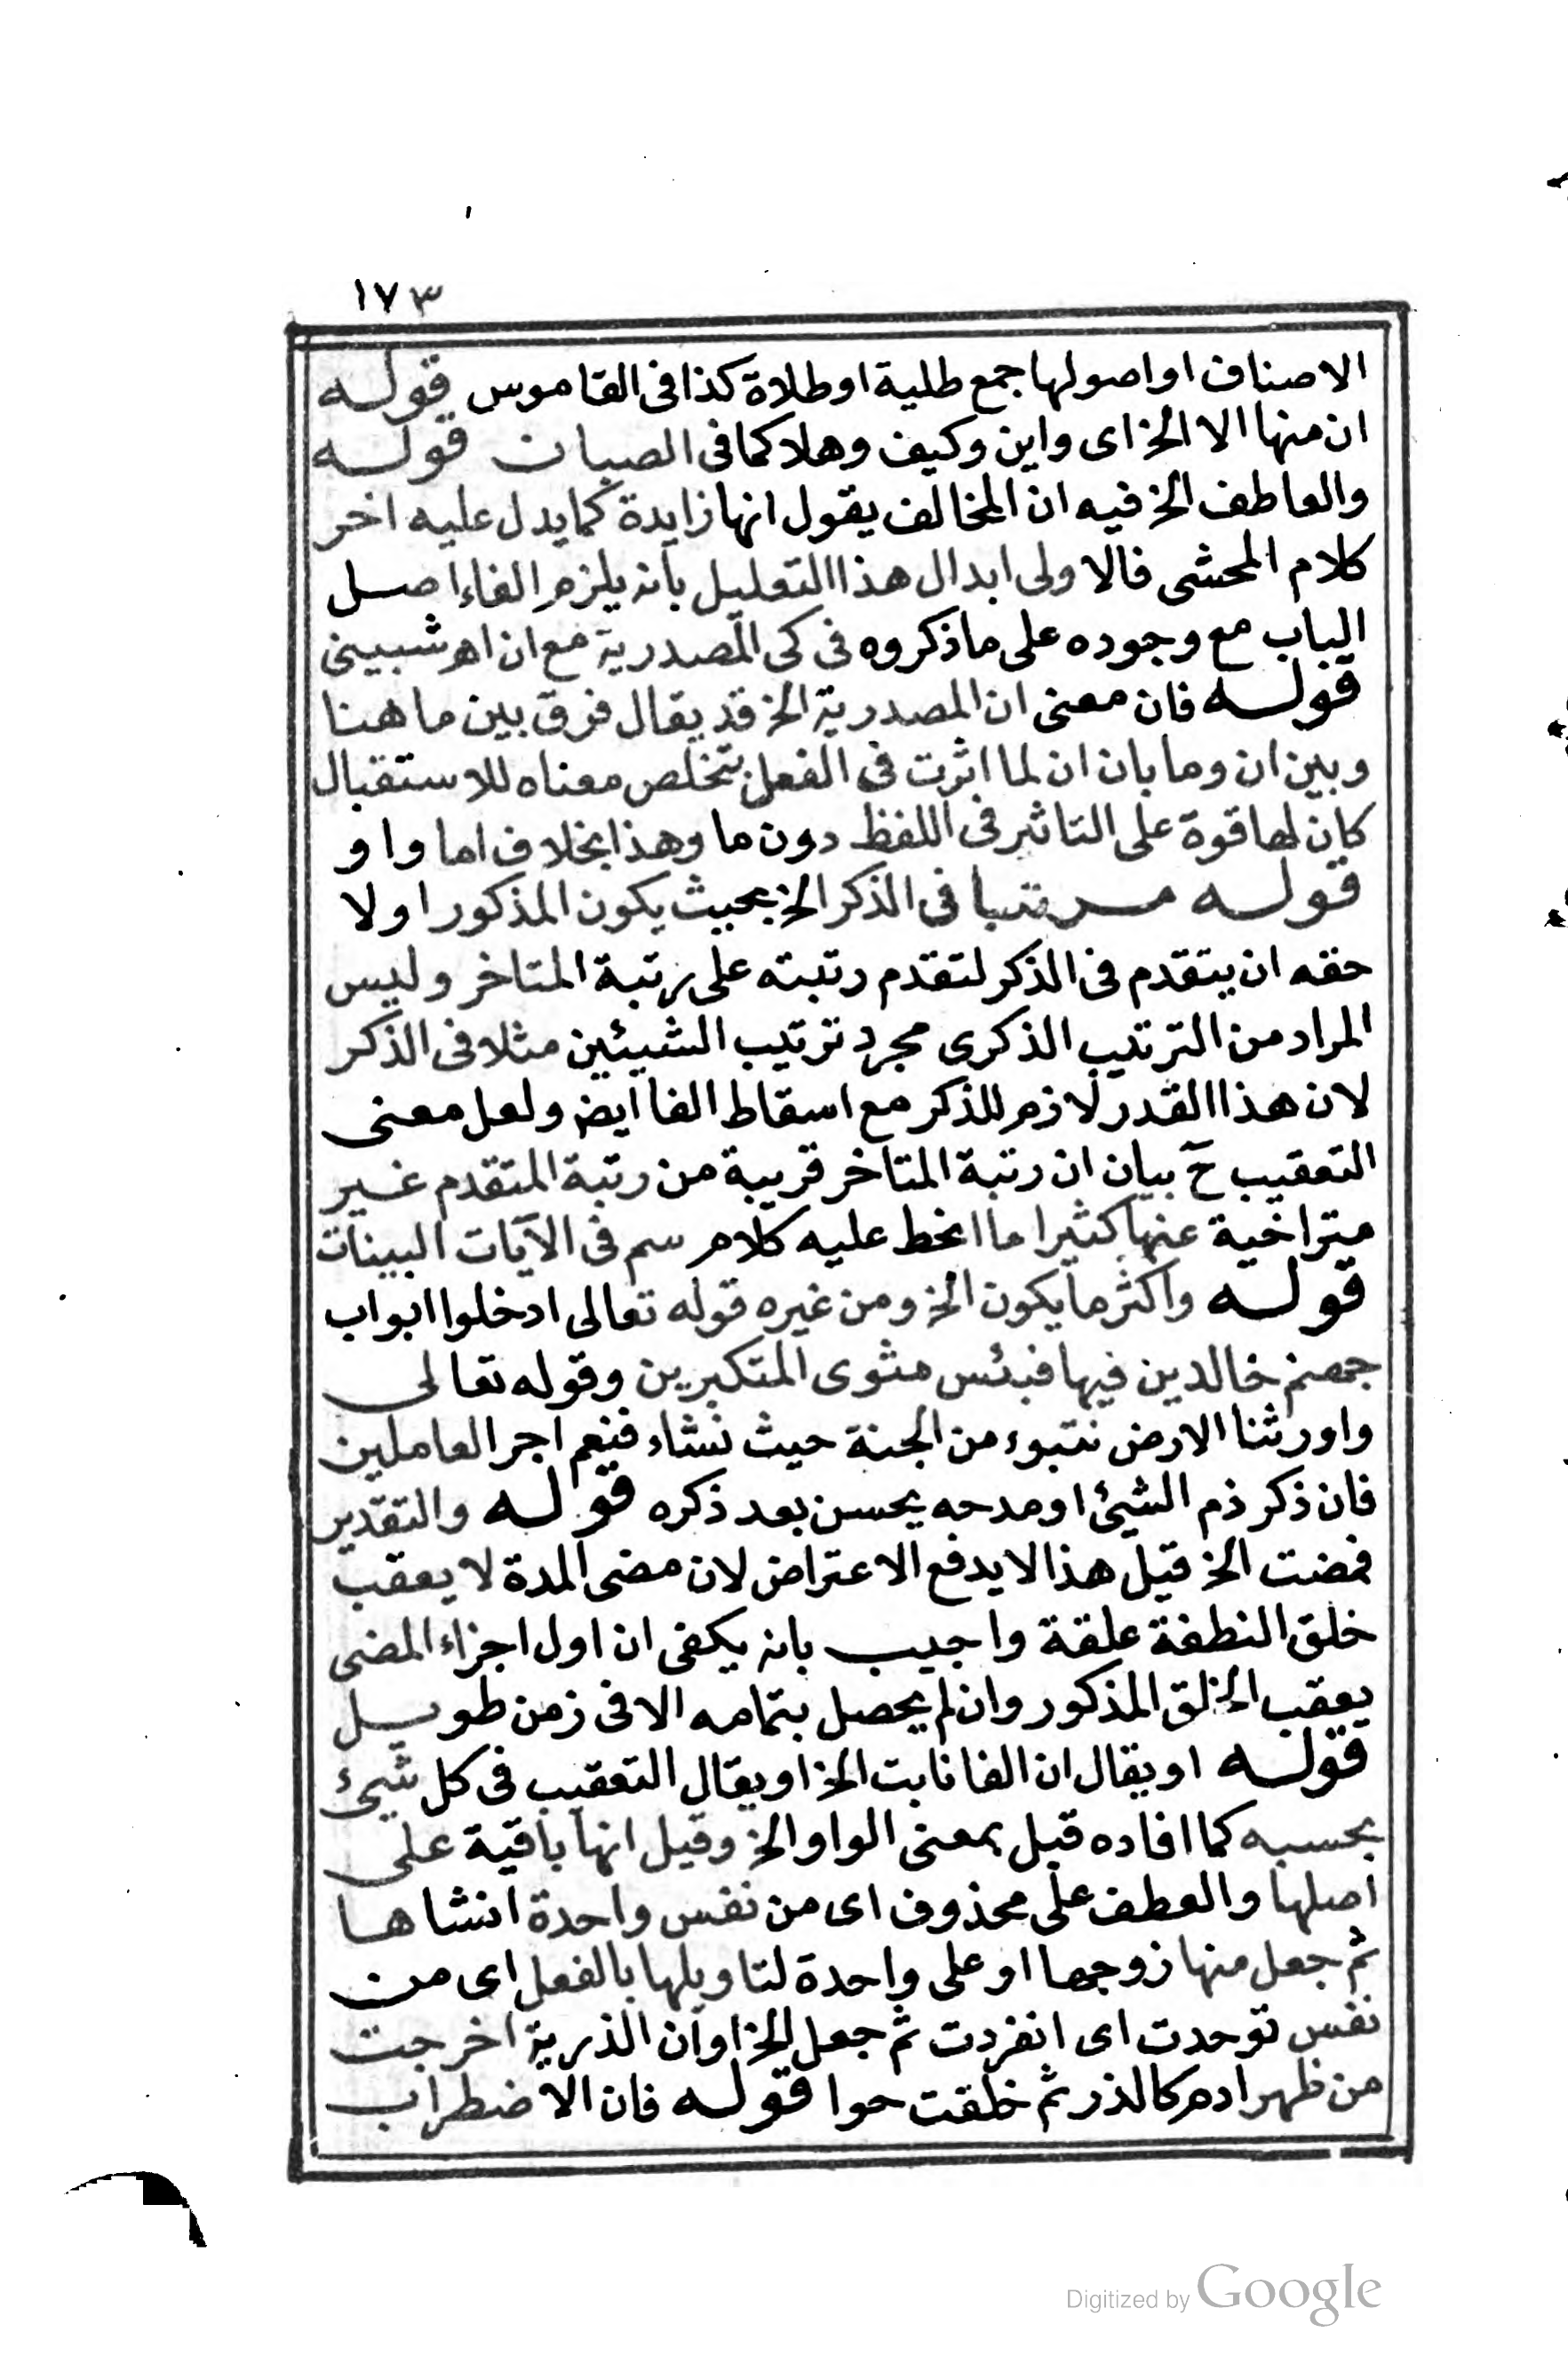 ١٧٣
الاصناف او اصولها جمع طلية او طلاة كذا فى القاموس قوله
ان منها الا الخ اى واين وكيف وهلا كما فى الصبان قوله
والعاطف الخ فيه ان المخالف يقول انها زايدة كما يدل عليه اخر
كلام المحشى فالا ولى ابدال هذا التعليل بانه يلزم الغاء اصل
الباب مع وجوده على ما ذكروه فى كى المصدرية مع ان اهر شبينى
قوله فان معنى ان المصدرية الخ قد يقال فرق بين ما هنا
وبين ان وما بان ان لما اثرت فى الفعل بتخلص معناه للاستقبال
كان لها قوة على التاثير فى اللفظ دون ما وهذا بخلاف اما واو
قوله مرتبا فى الذكر الخ بحيث يكون المذكور اولا
حقه ان يتقدم فى الذكر لتقدم رتبته على رتبة المتاخر وليس
المراد من الترتيب الذكرى مجرد ترتيب الشيئين مثلا فى الذكر
لان هذا القدر لازم للذكر مع اسقاط الفا ايض ولعل معنى
التعقيب ح بيان ان رتبة المتاخر قريبة من رتبة المتقدم غير
متراخية عنها كثيرا ما انحط عليه كلام سم فى الآيات البينات
قوله واكثر ما يكون الخ ومن غيره قوله تعالى ادخلوا ابواب
جهنم خالدين فيها فبئس مثوى المتكبرين وقوله تعالى
واورثنا الارض نتبوء من الجنة حيث نشاء فنعم اجر العاملين
فان ذكر ذم الشيئ او مدحه يحسن بعد ذكره قوله والتقدير
فمضت الخ قيل هذا لا يدفع الاعتراض لان مضى المدة لا يعقب
خلق النطفة علقة واجيب بانه يكفى ان اول اجزاء المضى
يعقب الخلق المذكور وان لم يحصل بتمامه الا فى زمن طويل
قوله او يقال ان الفا نابت الخ او يقال التعقيب فى كل شيئ
بحسبه كما افاده قبل بمعنى الواو الخ وقيل انها باقية على
اصلها والعطف على محذوف اى من نفس واحدة انشاها
ثم جعل منها زوجها او على واحدة لتاويلها بالفعل اى من
نفس توحدت اى انفردت ثم جعل الخ او ان الذرية اخرجت
من ظهر ادم كالذر ثم خلقت حوا قوله فان الاضطراب
Digitized by Google